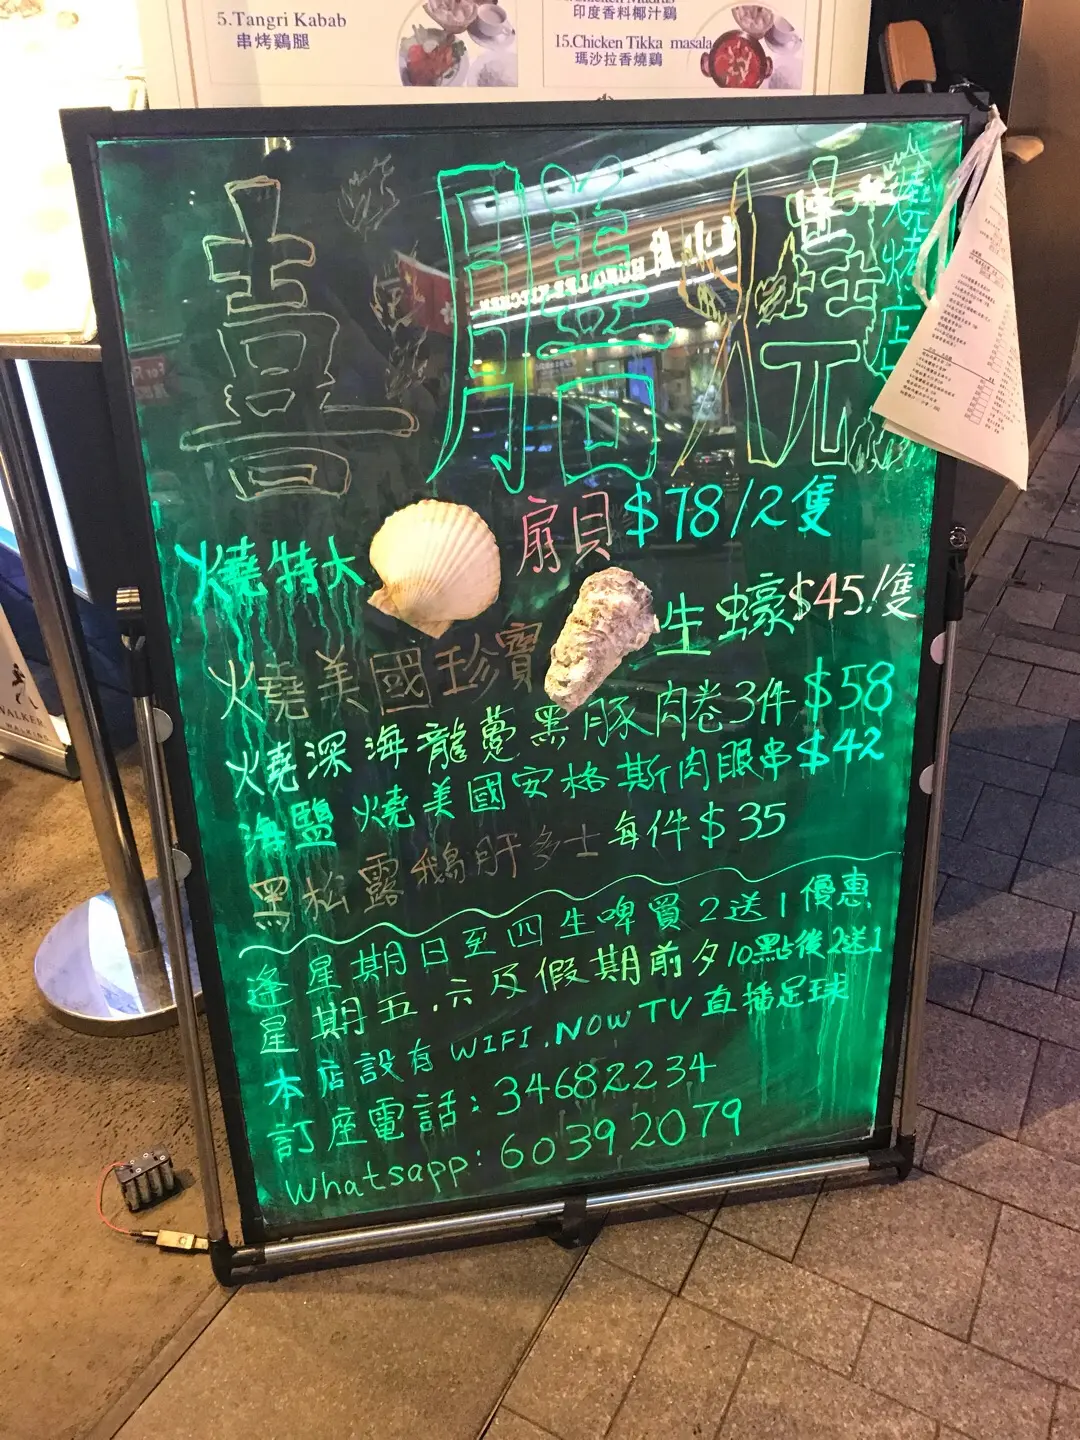 5.Tangri Kabab
串烤鷄腿
印度香料椰汁鷄
15.Chicken Tikka masala
瑪沙拉香燒鷄
喜膳燒
燒烤店
燒特大 扇貝 $78/2隻
燒美國珍寶 生蠔 $45/隻
燒深海龍躉黑豚肉卷3件 $58
海鹽燒美國安格斯肉眼串 $42
黑松露鵝肝多士每件 $35
逢星期日至四生啤買2送1優惠
星期五.六及假期前夕10點後2送1
本店設有WIFI.NOW TV直播足球
訂座電話:34682234
Whatsapp:60392079
WALKER